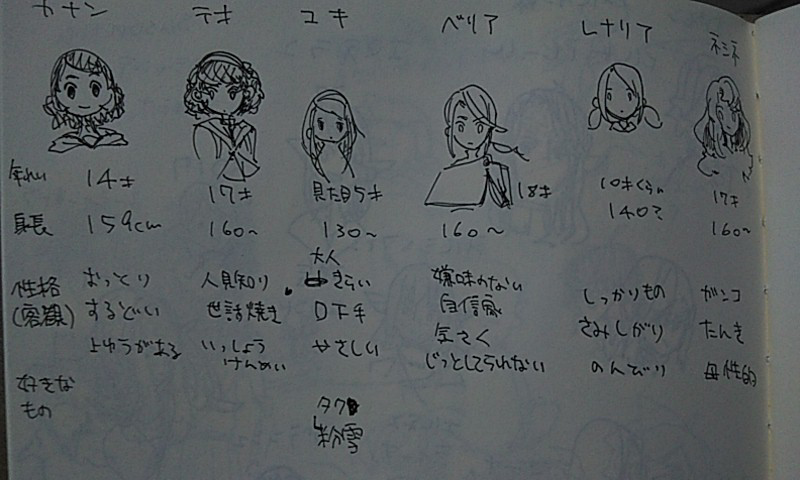 カナン テキ ユキ ベリア レナリア ネネ
年れい 14才 17才 見た目5才 18才 10才くらい 17才
身長 159cm 160〜 130〜 160〜 140て 160〜
性格(客観)
おっとり
するどい
よゆうがある
人見知り
世話焼き
いっしょうけんめい
大人
きらい
口下手
やさしい
嫌味のない
自信家
気さく
じっとしてられない
しっかりもの
さみしがり
のんびり
ガンコ
たんき
母性的
好きなもの
粉雪